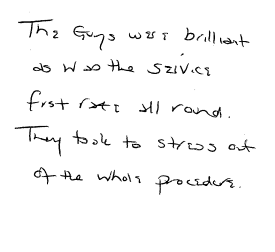 The Guys were brilliant
as was the service
first rate all round.
They took to stress out
of the whole procedure.